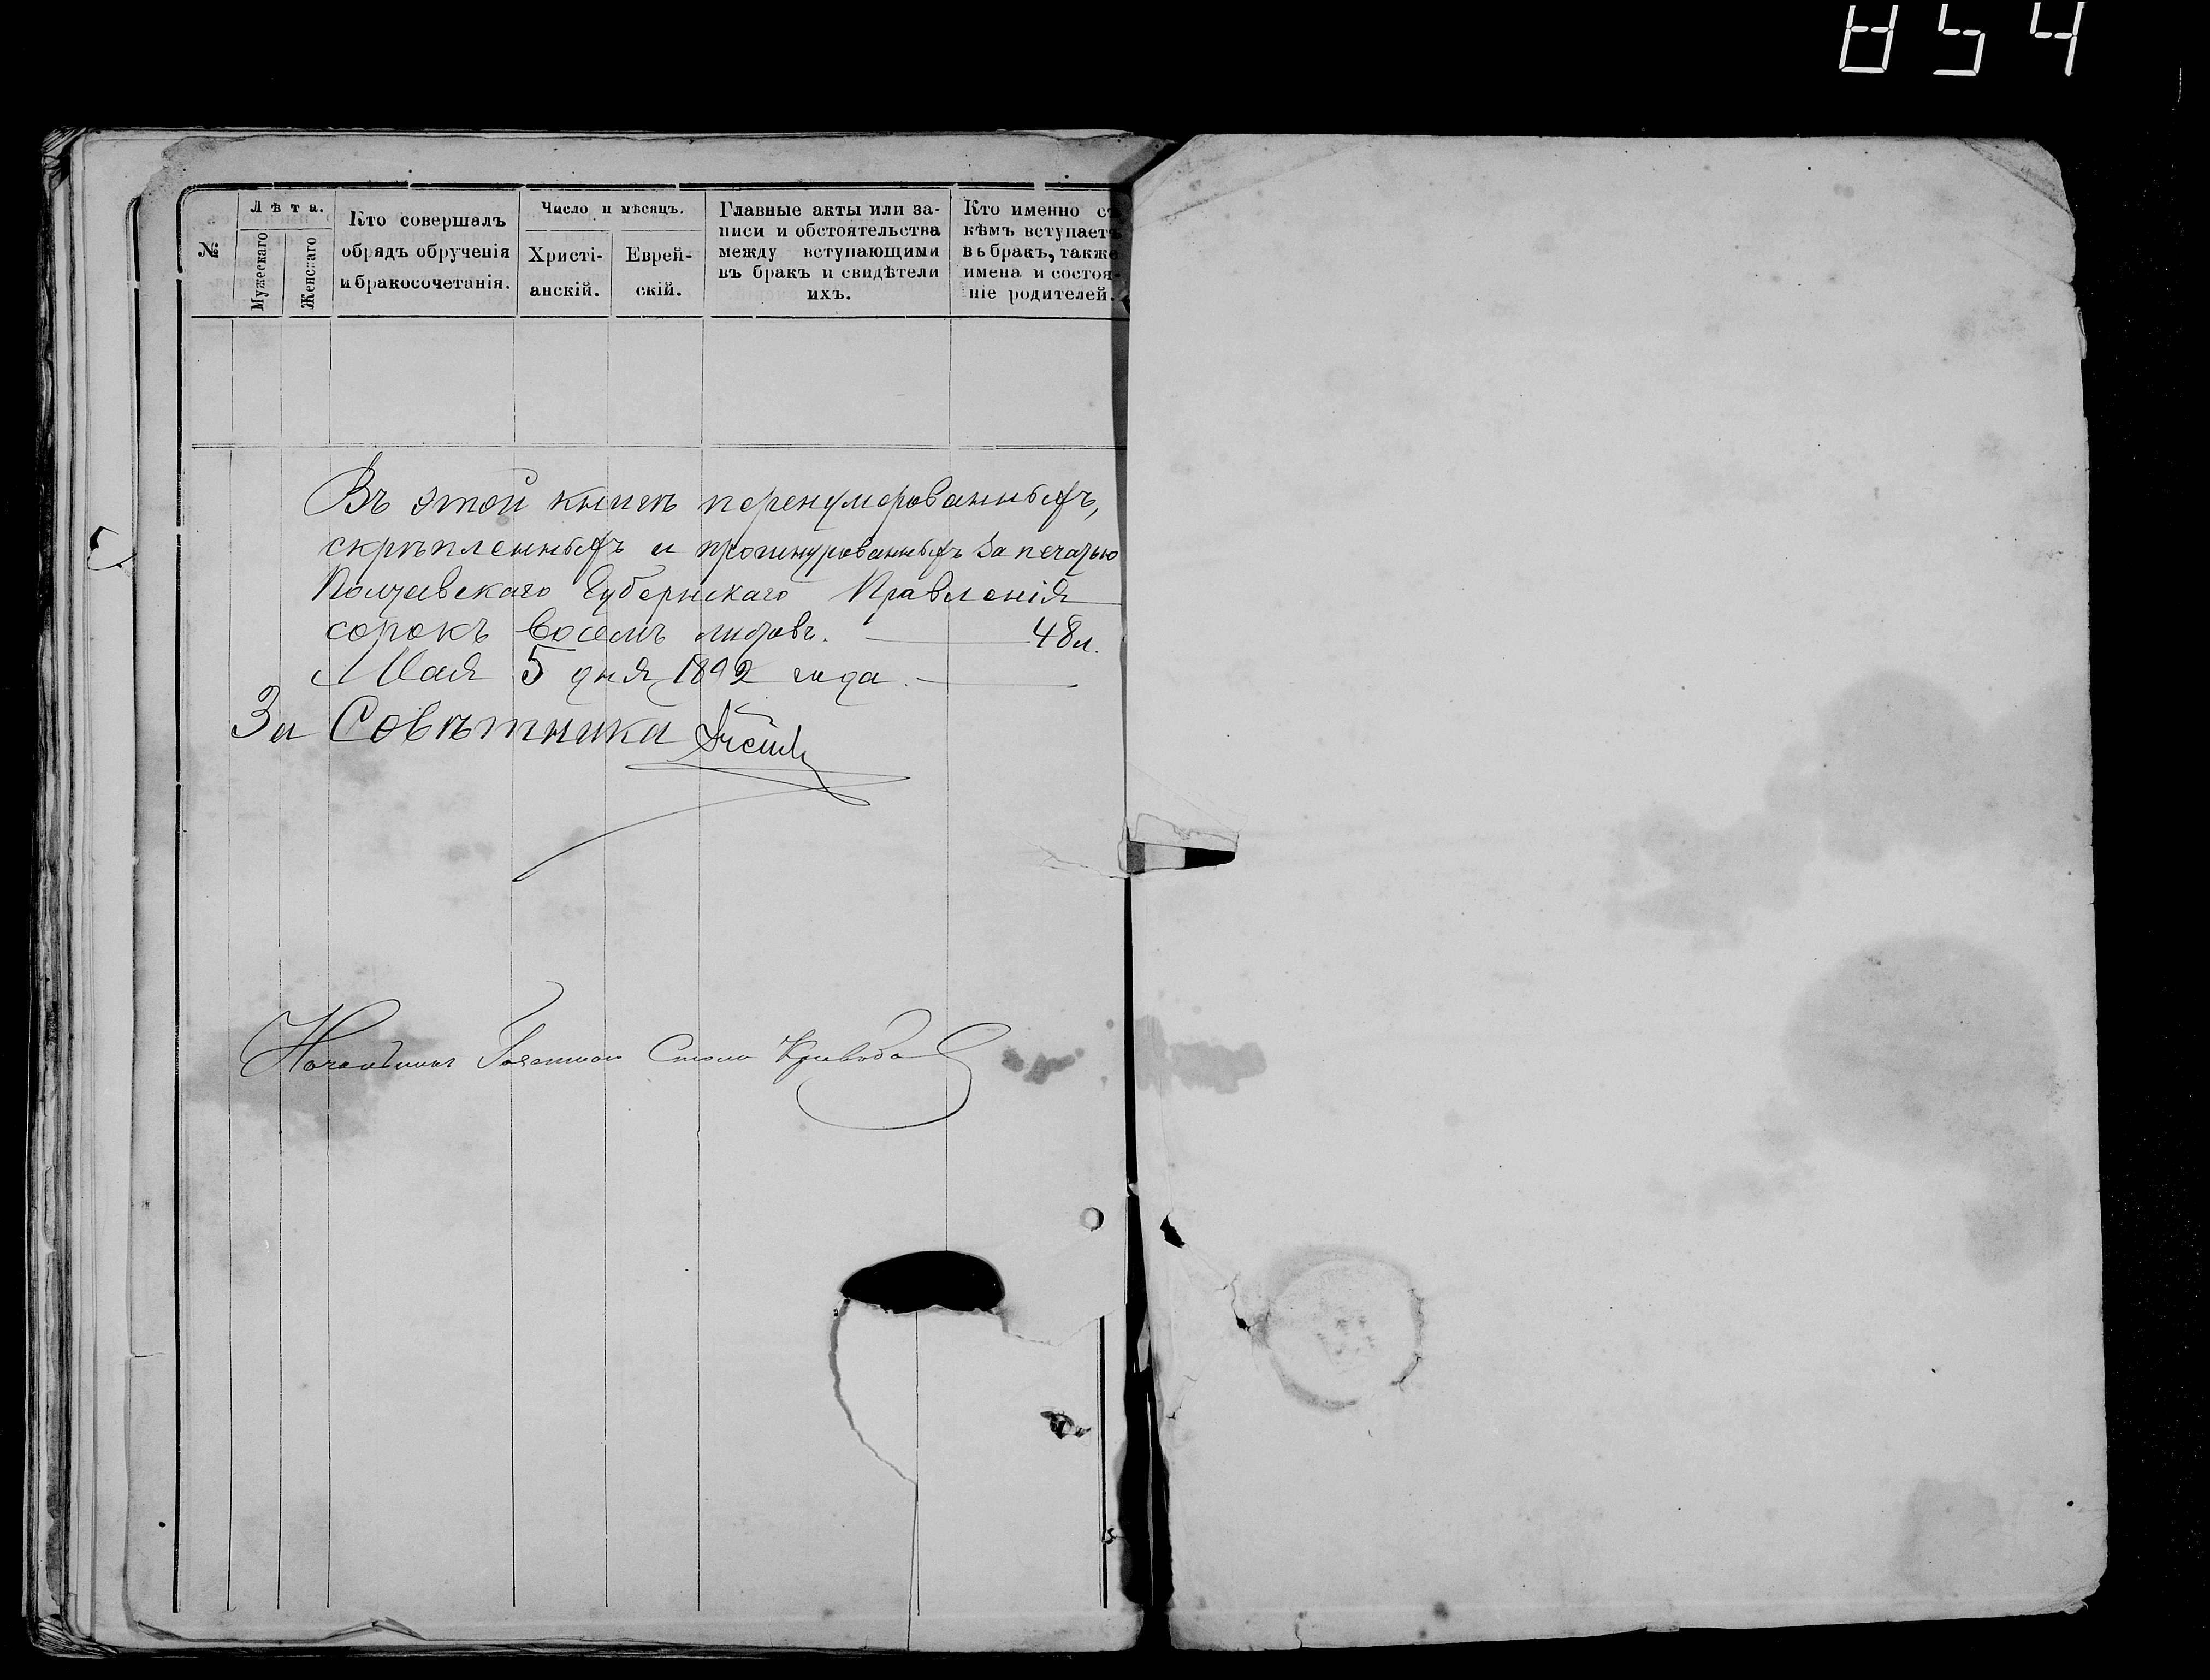 854
№
Лѣта.
Мужескаго
Женскаго
Кто совершалъ
обрядъ обрученія
и бракосочетанія.
Число и мѣсяцъ.
Христі-
анскій.
Еврей-
скій.
Главные акты или за-
писи и обстоятельства
между вступающими
въ бракъ и свидѣтели
ихъ.
Кто именно съ
кѣмъ вступаетъ
въ бракъ, также
имена и состоя-
ніе родителей.
Въ этой книгѣ перенумерованныхъ,
скрѣпленныхъ и прошнурованныхъ за печатью
Полтавскаго Губернскаго Правленія
сорокъ восемь листовъ. 48 л.
Мая 5 дня 1892 года.
За Совѣтника
Начальникъ Газетнаго Стола